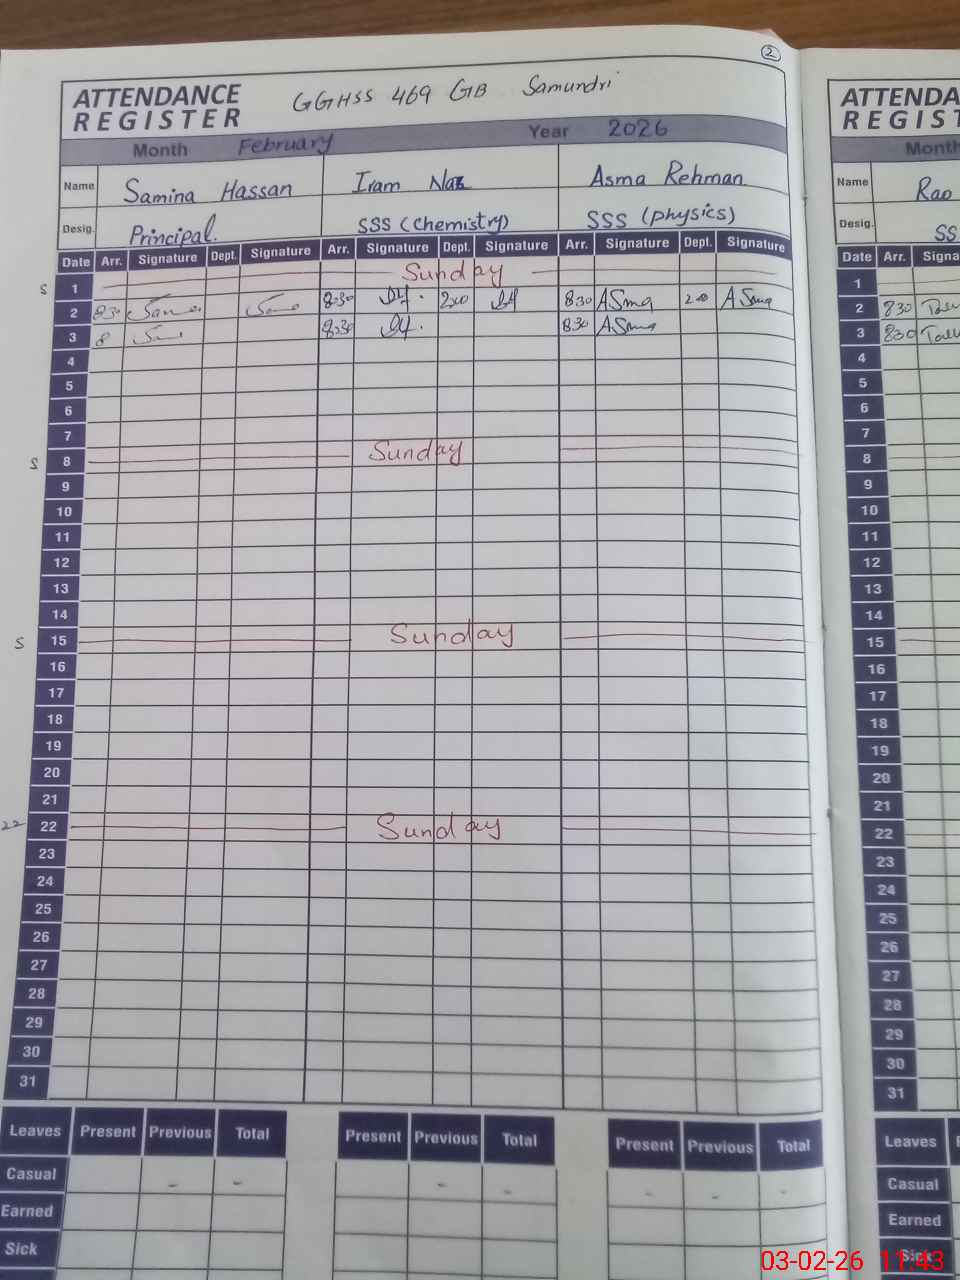 2
ATTENDANCE REGISTER GGHSS 469 GB Samundri
Month February Year 2026
Name Samina Hassan Iram Naz Asma Rehman
Desig. Principal. SSS (Chemistry) SSS (physics)
Date Arr. Signature Dept. Signature Arr. Signature Dept. Signature Arr. Signature Dept. Signature
S 1 Sunday
2 830 8:30 200 830 Asma 200 Asma
3 8 8:30 830 Asma
4
5
6
7
S 8 Sunday
9
10
11
12
13
14
S 15 Sunday
16
17
18
19
20
21
22 22 Sunday
23
24
25
26
27
28
29
30
31
Leaves Present Previous Total Present Previous Total Present Previous Total
Casual - - - - - - -
Earned
Sick
ATTENDA
REGIST
Month
Name Rao
Desig. SS
Date Arr. Signa
1
2 830
3 830
4
5
6
7
8
9
10
11
12
13
14
15
16
17
18
19
20
21
22
23
24
25
26
27
28
29
30
31
Leaves
Casual
Earned
Sick
03-02-26 11:43